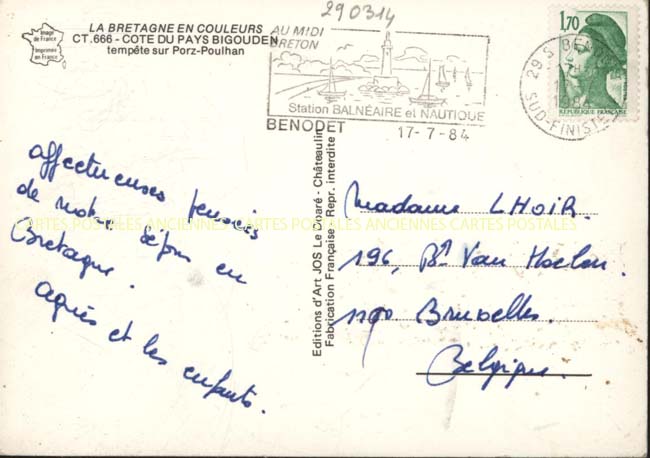 290314
LA BRETAGNE EN COULEURS
CT.666 - COTE DU PAYS BIGOUDEN
tempête sur Porz-Poulhan
Image de France
Imprimée en France
AU MIDI
BRETON
Station BALNÉAIRE et NAUTIQUE
BENODET
17-7-84
1,70
REPUBLIQUE FRANÇAISE
29 S BEN
1984
SUD-FINISTE
affectueuses pensées
de notre séjour en
Bretagne.
Agnès et les enfants.
CARTES POSTALES ANCIENNES CARTES POSTALES ANCIENNES CARTES POSTALES
Editions d'Art JOS Le Doaré - Châteaulin
Fabrication Française - Repr. interdite
Madame LHOIR.
196, Bd Van Haelen.
1190 Bruxelles.
Belgique.